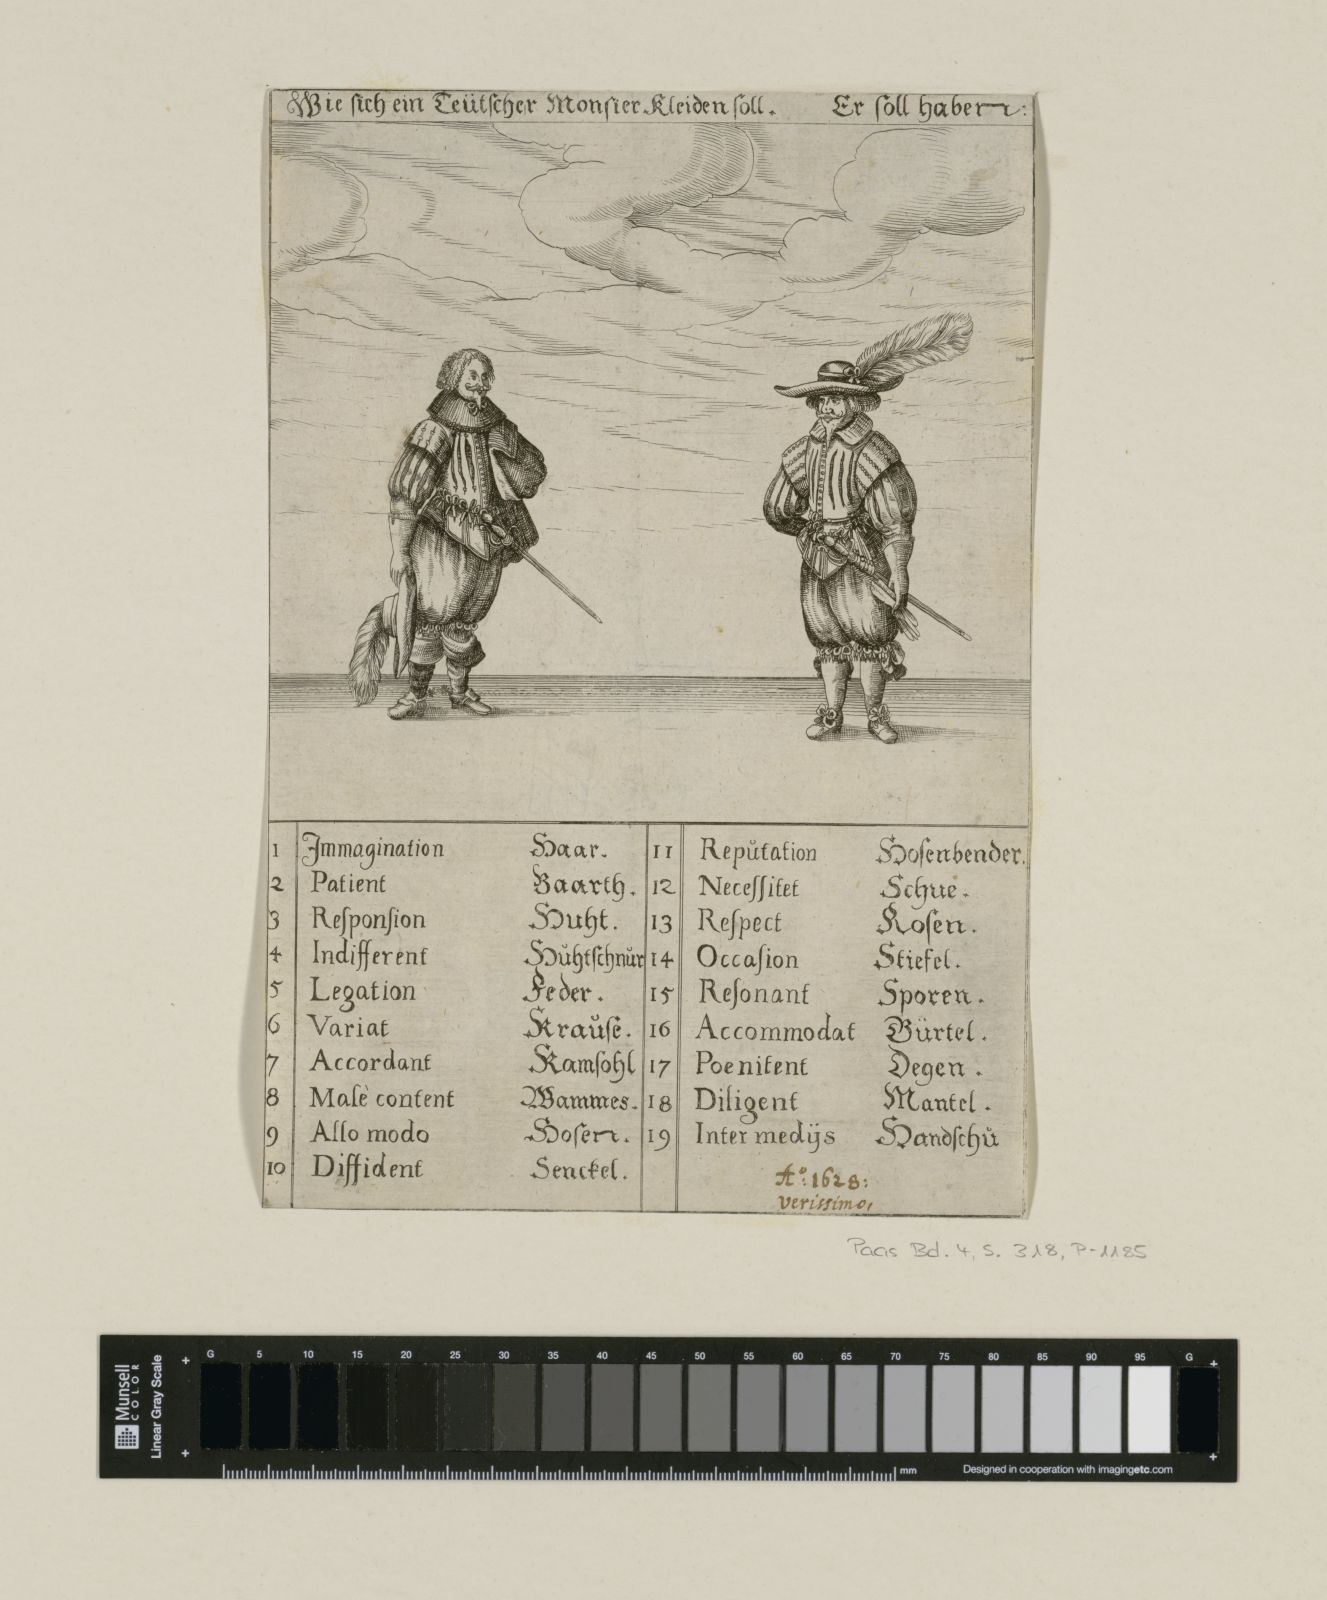 Wie sich ein Teütscher Monsier Kleiden soll. Er soll haben:
1 Immagination Haar.
2 Patient Baarth.
3 Responsion Huht.
4 Indifferent Hůhtschnůr
5 Legation Feder.
6 Variat Kraůse.
7 Accordant Kamsohl
8 Malè content Wammes.
9 Allo modo Hosen.
10 Diffident Senckel.
11 Repůtation Hosenbender.
12 Necessitet Schue.
13 Respect Rosen.
14 Occasion Stiefel.
15 Resonant Sporen.
16 Accommodat Gürtel.
17 Poenitent Degen.
18 Diligent Mantel.
19 Inter medijs Handschů
Aº: 1628:
verissimo,
Paas Bd. 4, S. 318, P-1185
Munsell
COLOR
Linear Gray Scale
G 5 10 15 20 25 30 35 40 45 50 55 60 65 70 75 80 85 90 95 G
mm
Designed in cooperation with imagingetc.com